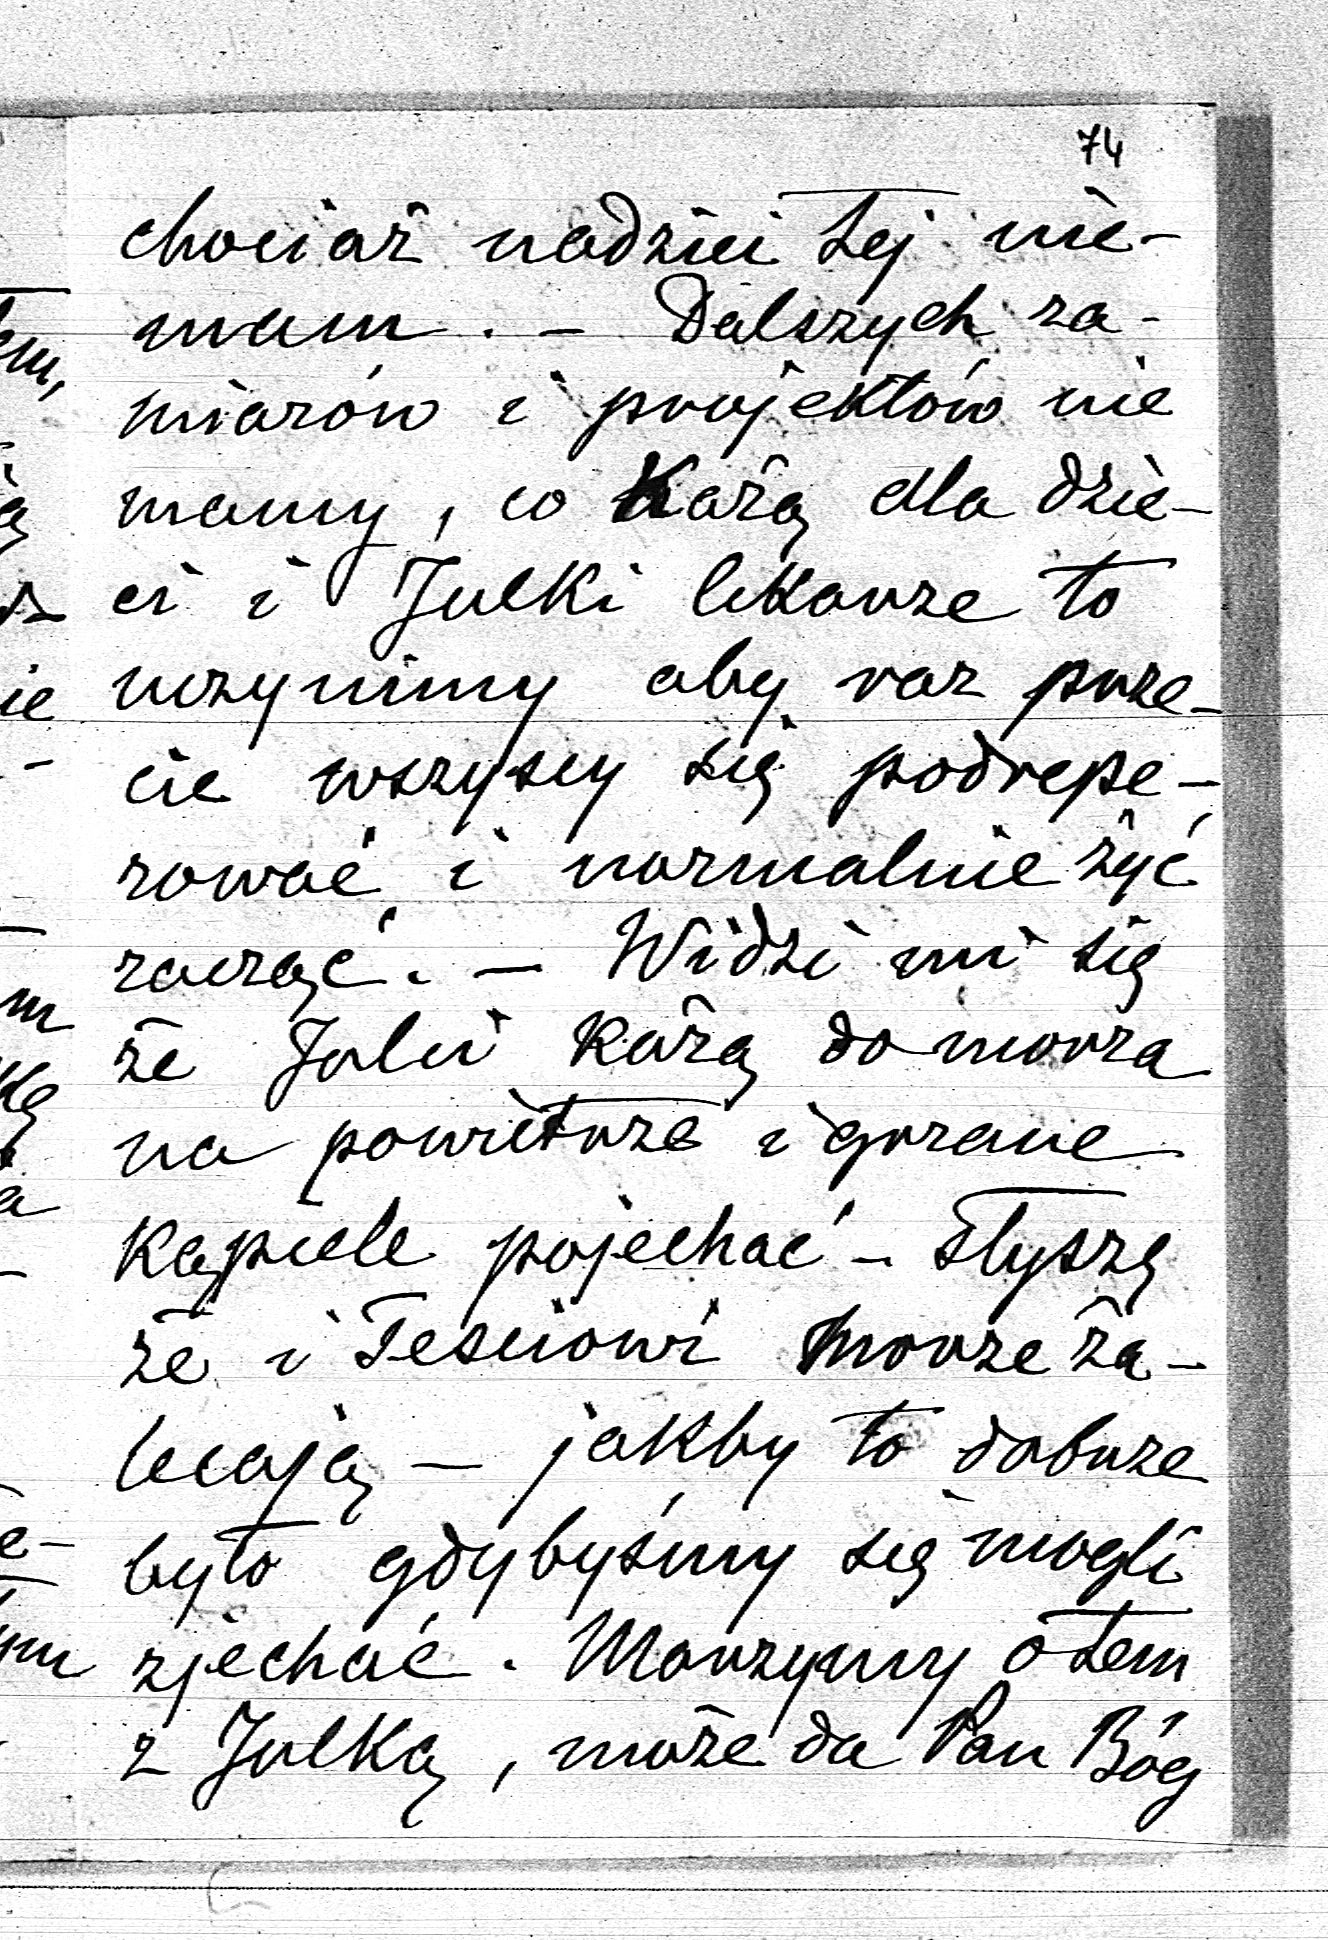 74
chociaż nadziei tej nie-
mam. – Dalszych za-
miarów i projektów nie
mamy, co każą dla dzie-
ci i Julki lekarze to
uczynimy aby raz prze-
cie wszyscy się podrepe-
rować i normalnie żyć
zacząć. – Widzi mi się
że Julci każą do morza
na powietrze i grzane
kąpiele pojechać – Słyszę
że i Teściowi morze za-
lecają – jakby to dobrze
było gdybyśmy się mogli
zjechać. Marzymy o tem
z Julką, może da Pan Bóg